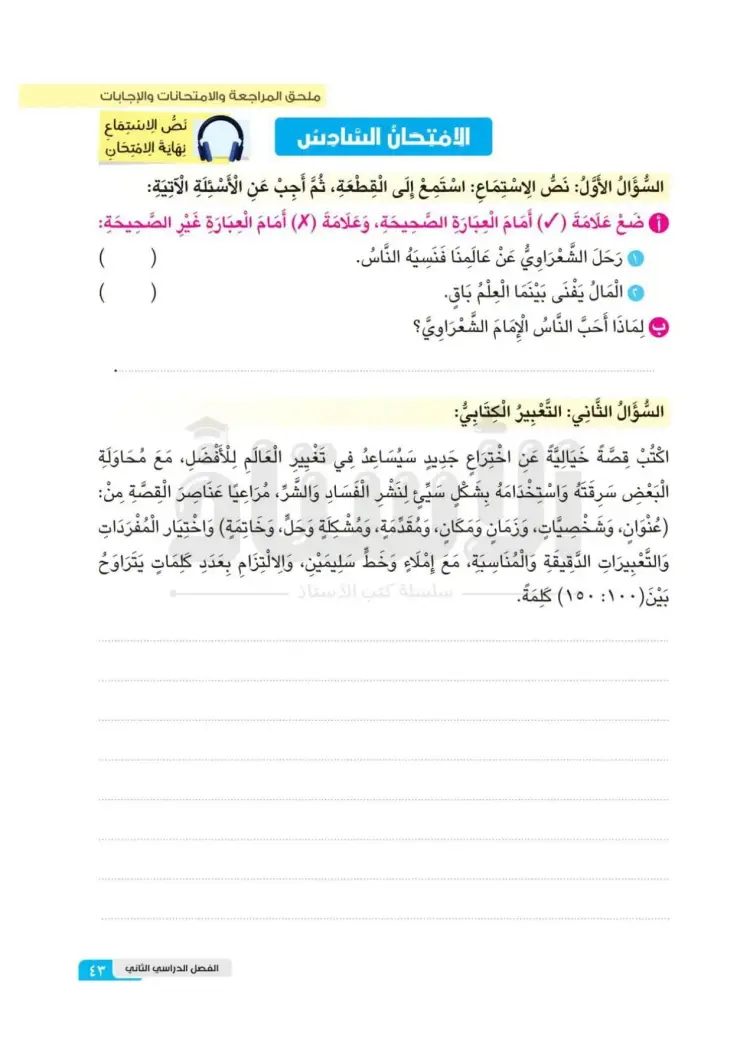 ملحق المراجعة والامتحانات والإجابات
نَصُّ الِاسْتِمَاعِ
نِهَايَةُ الِامْتِحَانِ
الِامْتِحَانُ السَّادِسُ
السُّؤَالُ الْأَوَّلُ: نَصُّ الِاسْتِمَاعِ: اسْتَمِعْ إِلَى الْقِطْعَةِ، ثُمَّ أَجِبْ عَنِ الْأَسْئِلَةِ الْآتِيَةِ:
أ ضَعْ عَلَامَةَ (✓) أَمَامَ الْعِبَارَةِ الصَّحِيحَةِ، وَعَلَامَةَ (✗) أَمَامَ الْعِبَارَةِ غَيْرِ الصَّحِيحَةِ:
١ رَحَلَ الشَّعْرَاوِيُّ عَنْ عَالَمِنَا فَنَسِيَهُ النَّاسُ. ( )
٢ الْمَالُ يَفْنَى بَيْنَمَا الْعِلْمُ بَاقٍ. ( )
ب لِمَاذَا أَحَبَّ النَّاسُ الْإِمَامَ الشَّعْرَاوِيَّ؟
السُّؤَالُ الثَّانِي: التَّعْبِيرُ الْكِتَابِيُّ:
اكْتُبْ قِصَّةً خَيَالِيَّةً عَنِ اخْتِرَاعٍ جَدِيدٍ سَيُسَاعِدُ فِي تَغْيِيرِ الْعَالَمِ لِلْأَفْضَلِ، مَعَ مُحَاوَلَةِ
الْبَعْضِ سَرِقَتَهُ وَاسْتِخْدَامَهُ بِشَكْلٍ سَيِّئٍ لِنَشْرِ الْفَسَادِ وَالشَّرِّ، مُرَاعِيًا عَنَاصِرَ الْقِصَّةِ مِنْ:
(عُنْوَانٍ، وَشَخْصِيَّاتٍ، وَزَمَانٍ وَمَكَانٍ، وَمُقَدِّمَةٍ، وَمُشْكِلَةٍ وَحَلٍّ، وَخَاتِمَةٍ) وَاخْتِيَارِ الْمُفْرَدَاتِ
وَالتَّعْبِيرَاتِ الدَّقِيقَةِ وَالْمُنَاسِبَةِ، مَعَ إِمْلَاءٍ وَخَطٍّ سَلِيمَيْنِ، وَالِالْتِزَامِ بِعَدَدِ كَلِمَاتٍ يَتَرَاوَحُ
بَيْنَ(١٠٠: ١٥٠) كَلِمَةً.
الأستاذ
سلسلة كتب الأستاذ
الفصل الدراسي الثاني
٤٣